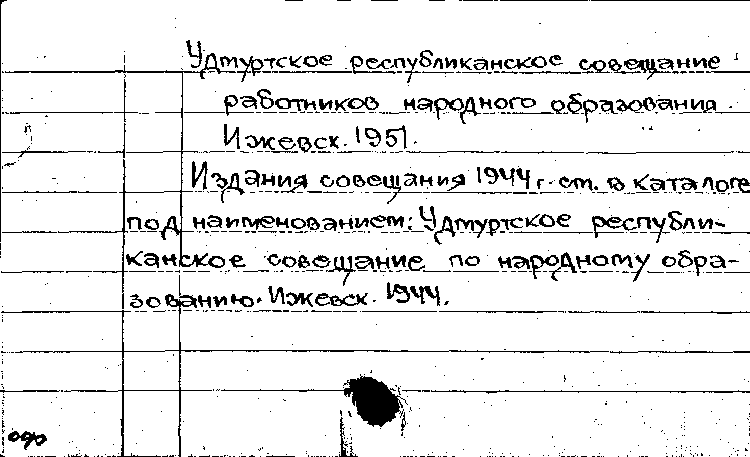 Удмуртское республиканское совещание
работников народного образования.
Ижевск. 1951.
Издания совещания 1944 г. см. в каталоге
под наименованием: Удмуртское республи-
канское совещание по народному обра-
зованию. Ижевск. 1944.